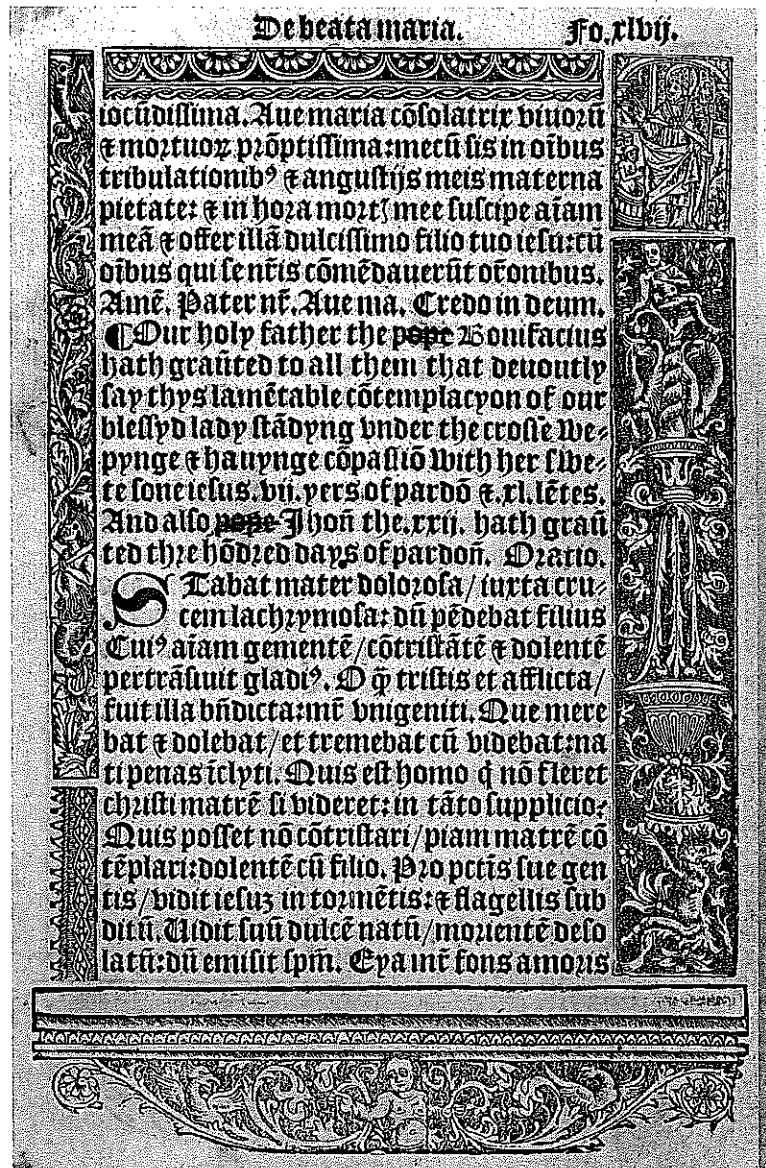 De beata maria. Fo.xlvij.
iocũdissima. Aue maria cõsolatrix viuorũ
⁊ mortuoꝝ prõptissima: mecũ sis in oĩbus
tribulationibꝰ ⁊ angustijs meis materna
pietate: ⁊ in hora mortꝭ mee suscipe aĩam
meã ⁊ offer illã dulcissimo filio tuo iesu: cũ
oĩbus qui se nr̃is cõmẽdauerũt or̃onibus.
Amẽ. Pater nr̃. Aue ma. Credo in deum.
¶ Our holy father the pope Bonifacius
hath graũted to all them that deuoutly
say thys lamẽtable cõtemplacyon of our
blessyd lady stãdyng vnder the crosse we⸗
pynge ⁊ hauynge cõpassiõ with her swe⸗
te sone iesus. vij. yers of pardõ ⁊ .xl. lẽtes.
And also pope Jhoñ the .xxij. hath graũ
ted thre hõdred days of pardoñ. Oratio.
STabat mater dolorosa / iuxta cru⸗
cem lachrymosa: dũ pẽdebat filius
Cuiꝰ aĩam gementẽ / cõtristãtẽ ⁊ dolentẽ
pertrãsiuit gladiꝰ. O q̃ tristis et afflicta /
fuit illa bñdicta: mr̃ vnigeniti. Que mere
bat ⁊ dolebat / et tremebat cũ videbat: na
ti penas ĩclyti. Quis est homo q̇ nõ fleret
christi matrẽ si videret: in tãto supplicio⸗
Quis posset nõ cõtristari / piam matrẽ cõ
tẽplari: dolentẽ cũ filio. Pro pctĩs sue gen
tis / vidit iesuꝫ in tormẽtis: ⁊ flagellis sub
ditũ. Uidit suũ dulcẽ natũ / morientẽ deso
latũ: dũ emisit spm̃. Eya mr̃ fons amoris